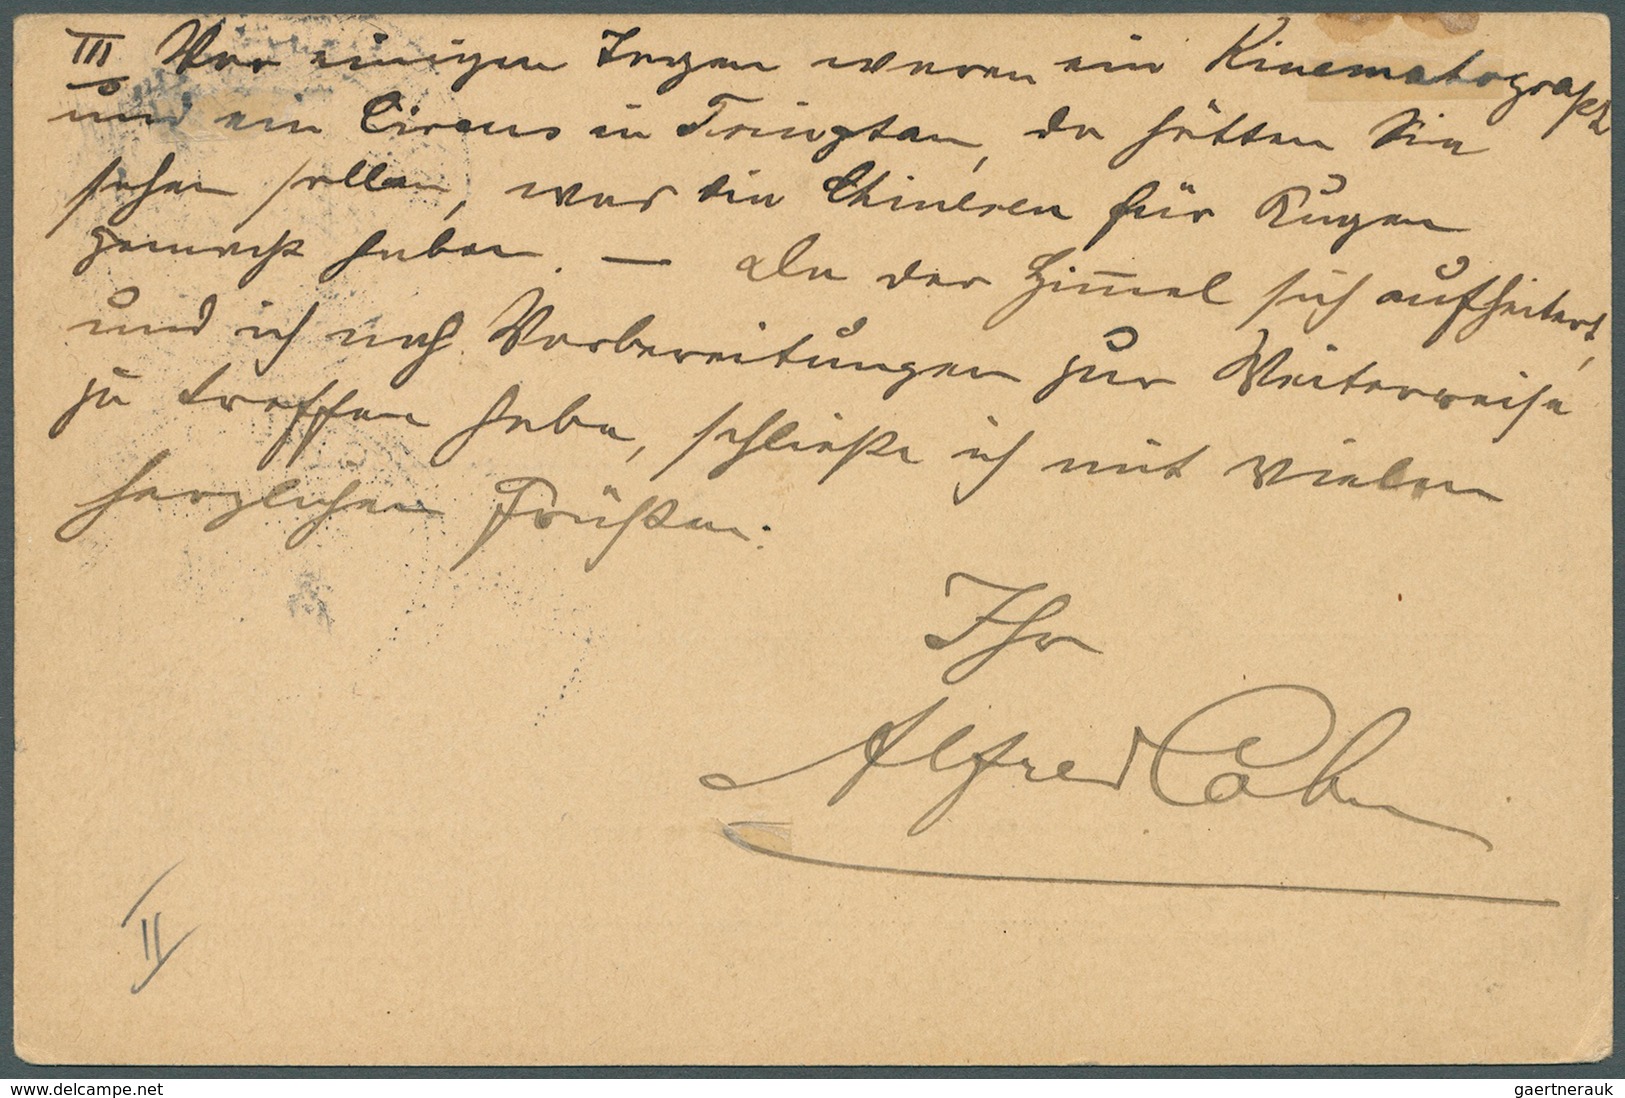 III Vor einigen Tagen waren ein Kinematograph
und ein Circus in Tsingtau, da hätten Sie
sehen sollen, was die Chinesen für Augen
gemacht haben. — Da der Himmel sich aufheitert,
und ich noch Vorbereitungen zur Weiterreise
zu treffen habe, schließe ich mit vielen
herzlichen Grüßen.
Ihr
Alfred Cohn
II
www.delcampe.net
gaertnerauk